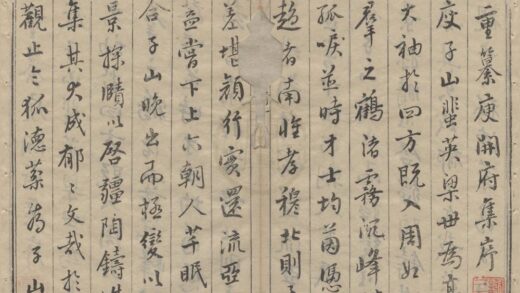 重纂庾開府集序
庾子山蜚英梁世為
大袖於四方既入周如
羣之鶴渚霧沉峰
孤唳並時才士均茵憑
超者南惟孝穆北則子
差堪顏行實還流亞
嘗下上六朝人芊眠
合子山晚出而極變以
景探賾以啓疆陶鑄
集其大成郁郁文哉於
觀止令狐德棻為子山